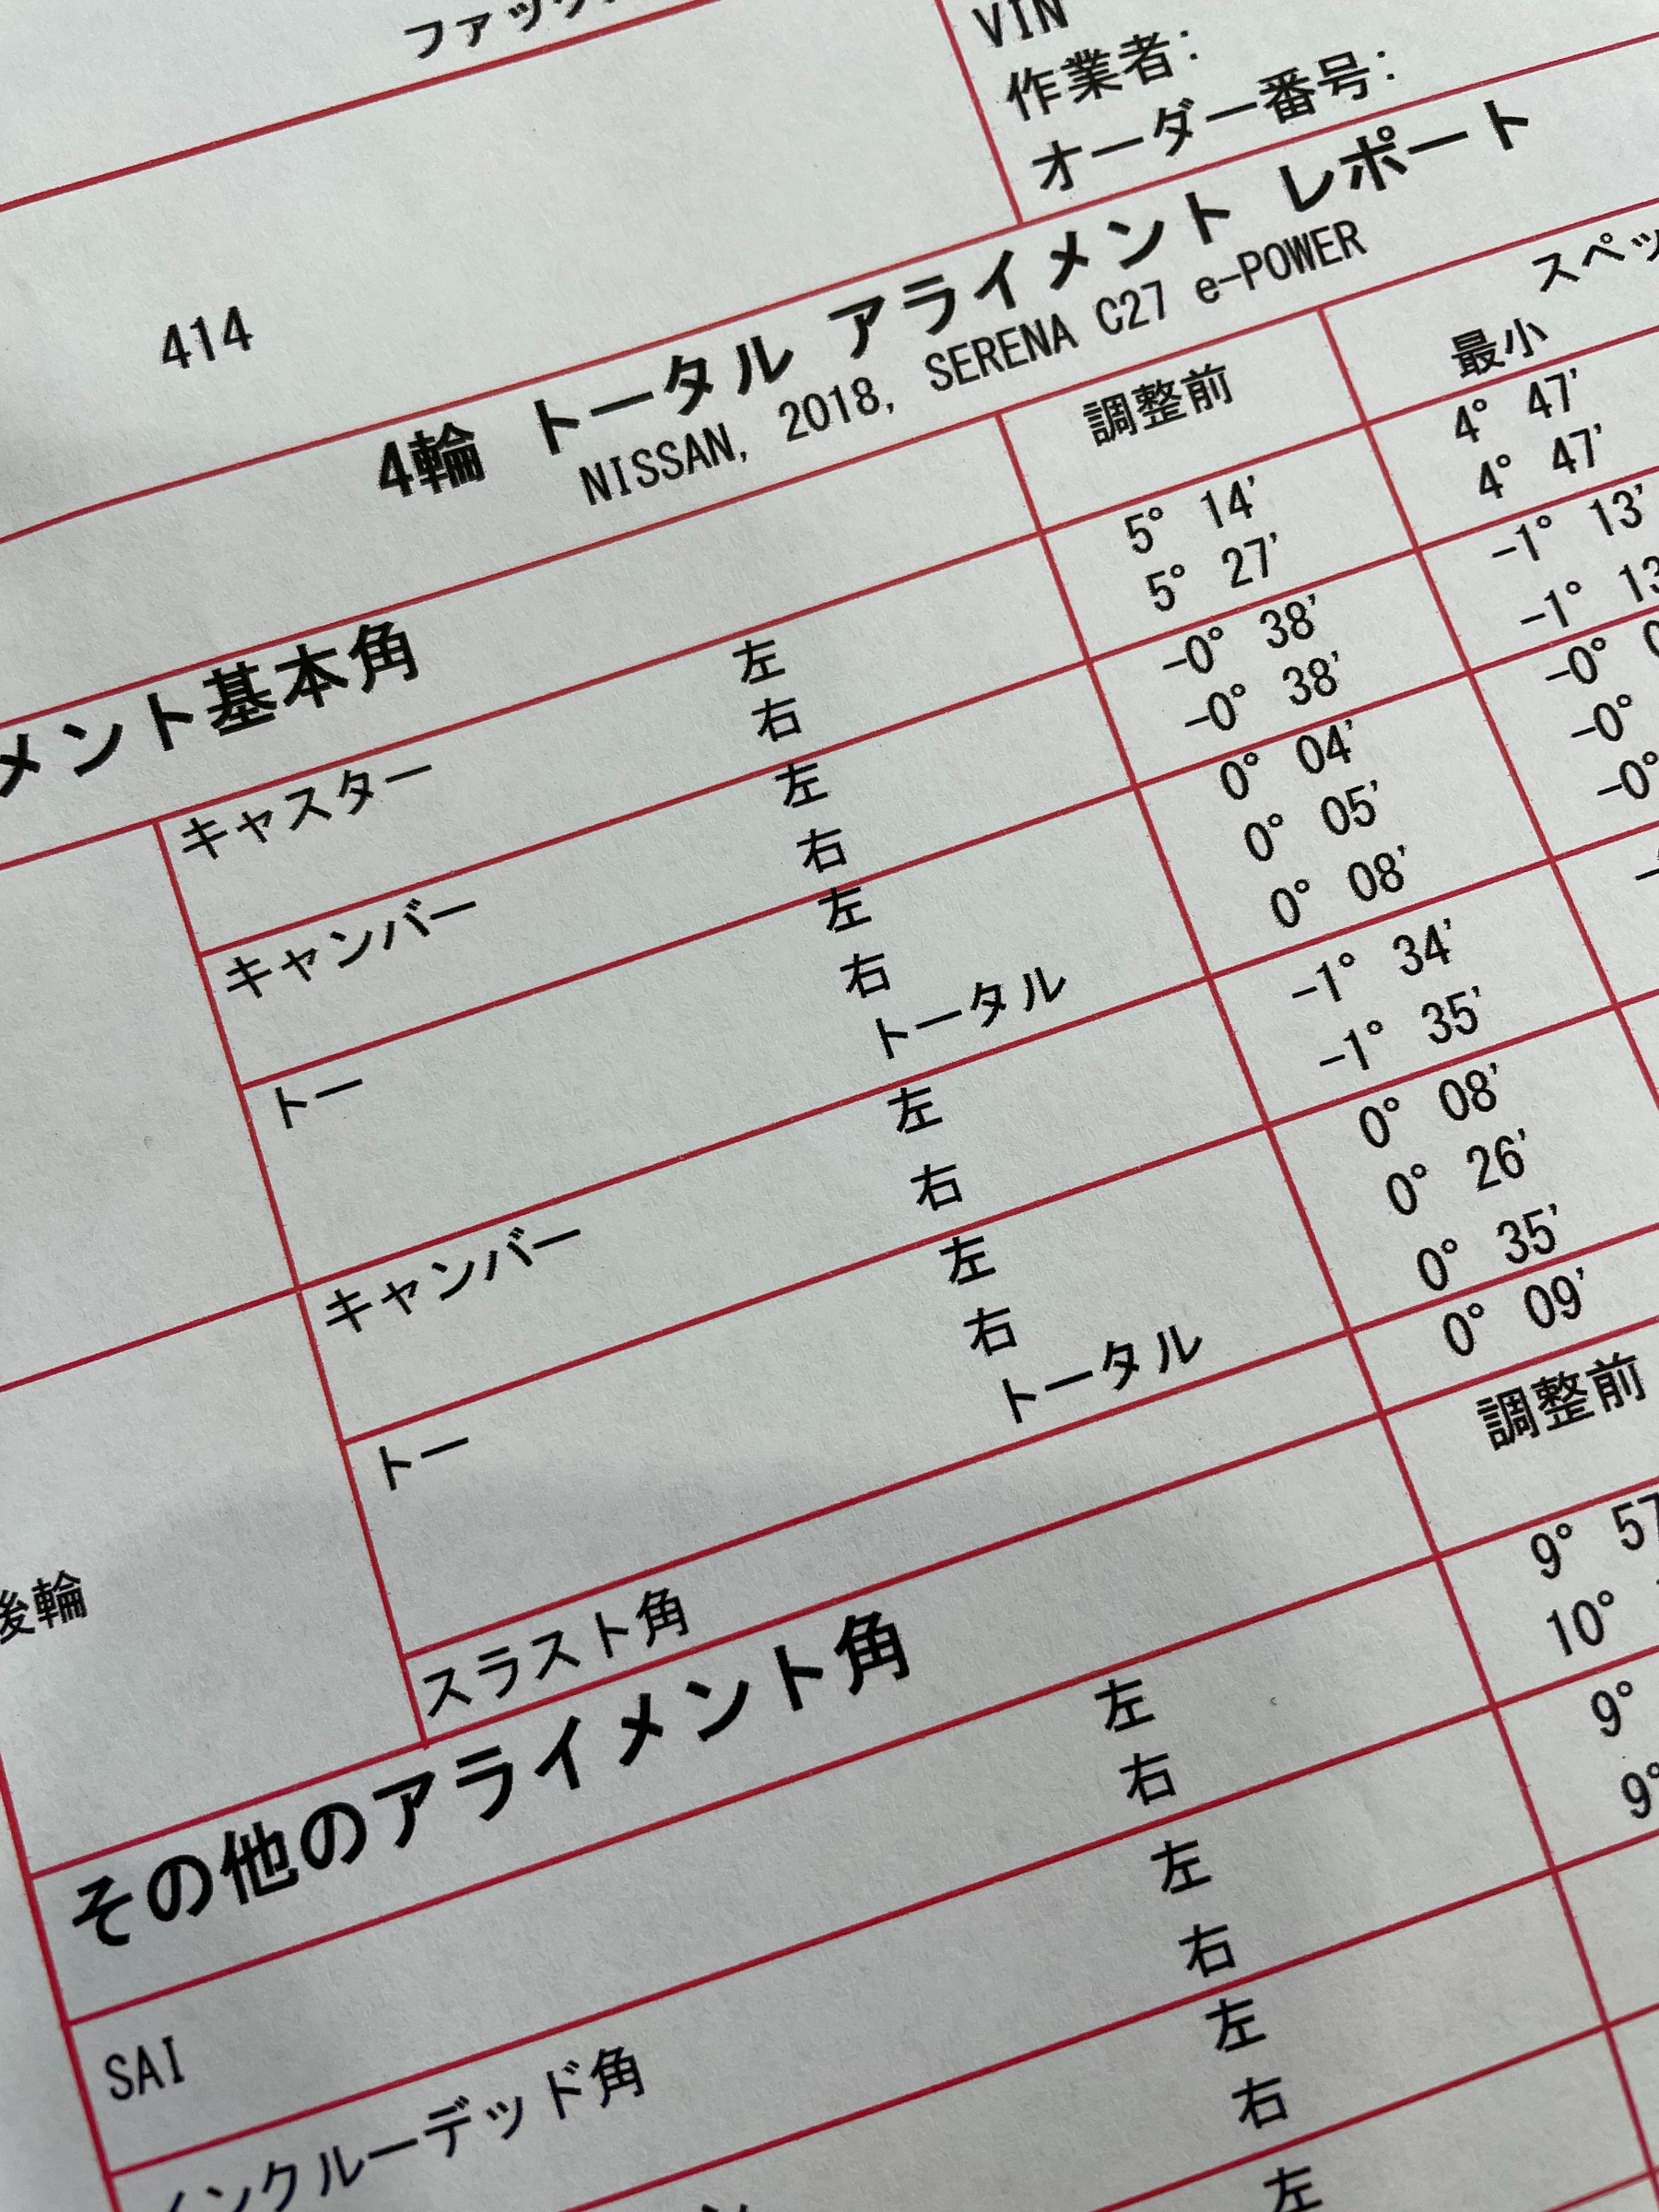 VIN
作業者:
オーダー番号:
414
4輪 トータル アライメント レポート
NISSAN, 2018, SERENA C27 e-POWER
メント基本角
調整前
最小
キャスター 左 5° 14' 4° 47'
右 5° 27' 4° 47'
キャンバー 左 -0° 38' -1° 13'
右 -0° 38' -1° 13
トー 左 0° 04' -0°
右 0° 05' -0°
トータル 0° 08' -0°
後輪
キャンバー 左 -1° 34'
右 -1° 35'
トー 左 0° 08'
右 0° 26'
トータル 0° 35'
スラスト角 0° 09'
その他のアライメント角
調整前
SAI 左 9° 57
右 10°
インクルーデッド角 左 9°
右 9°
左
右
左